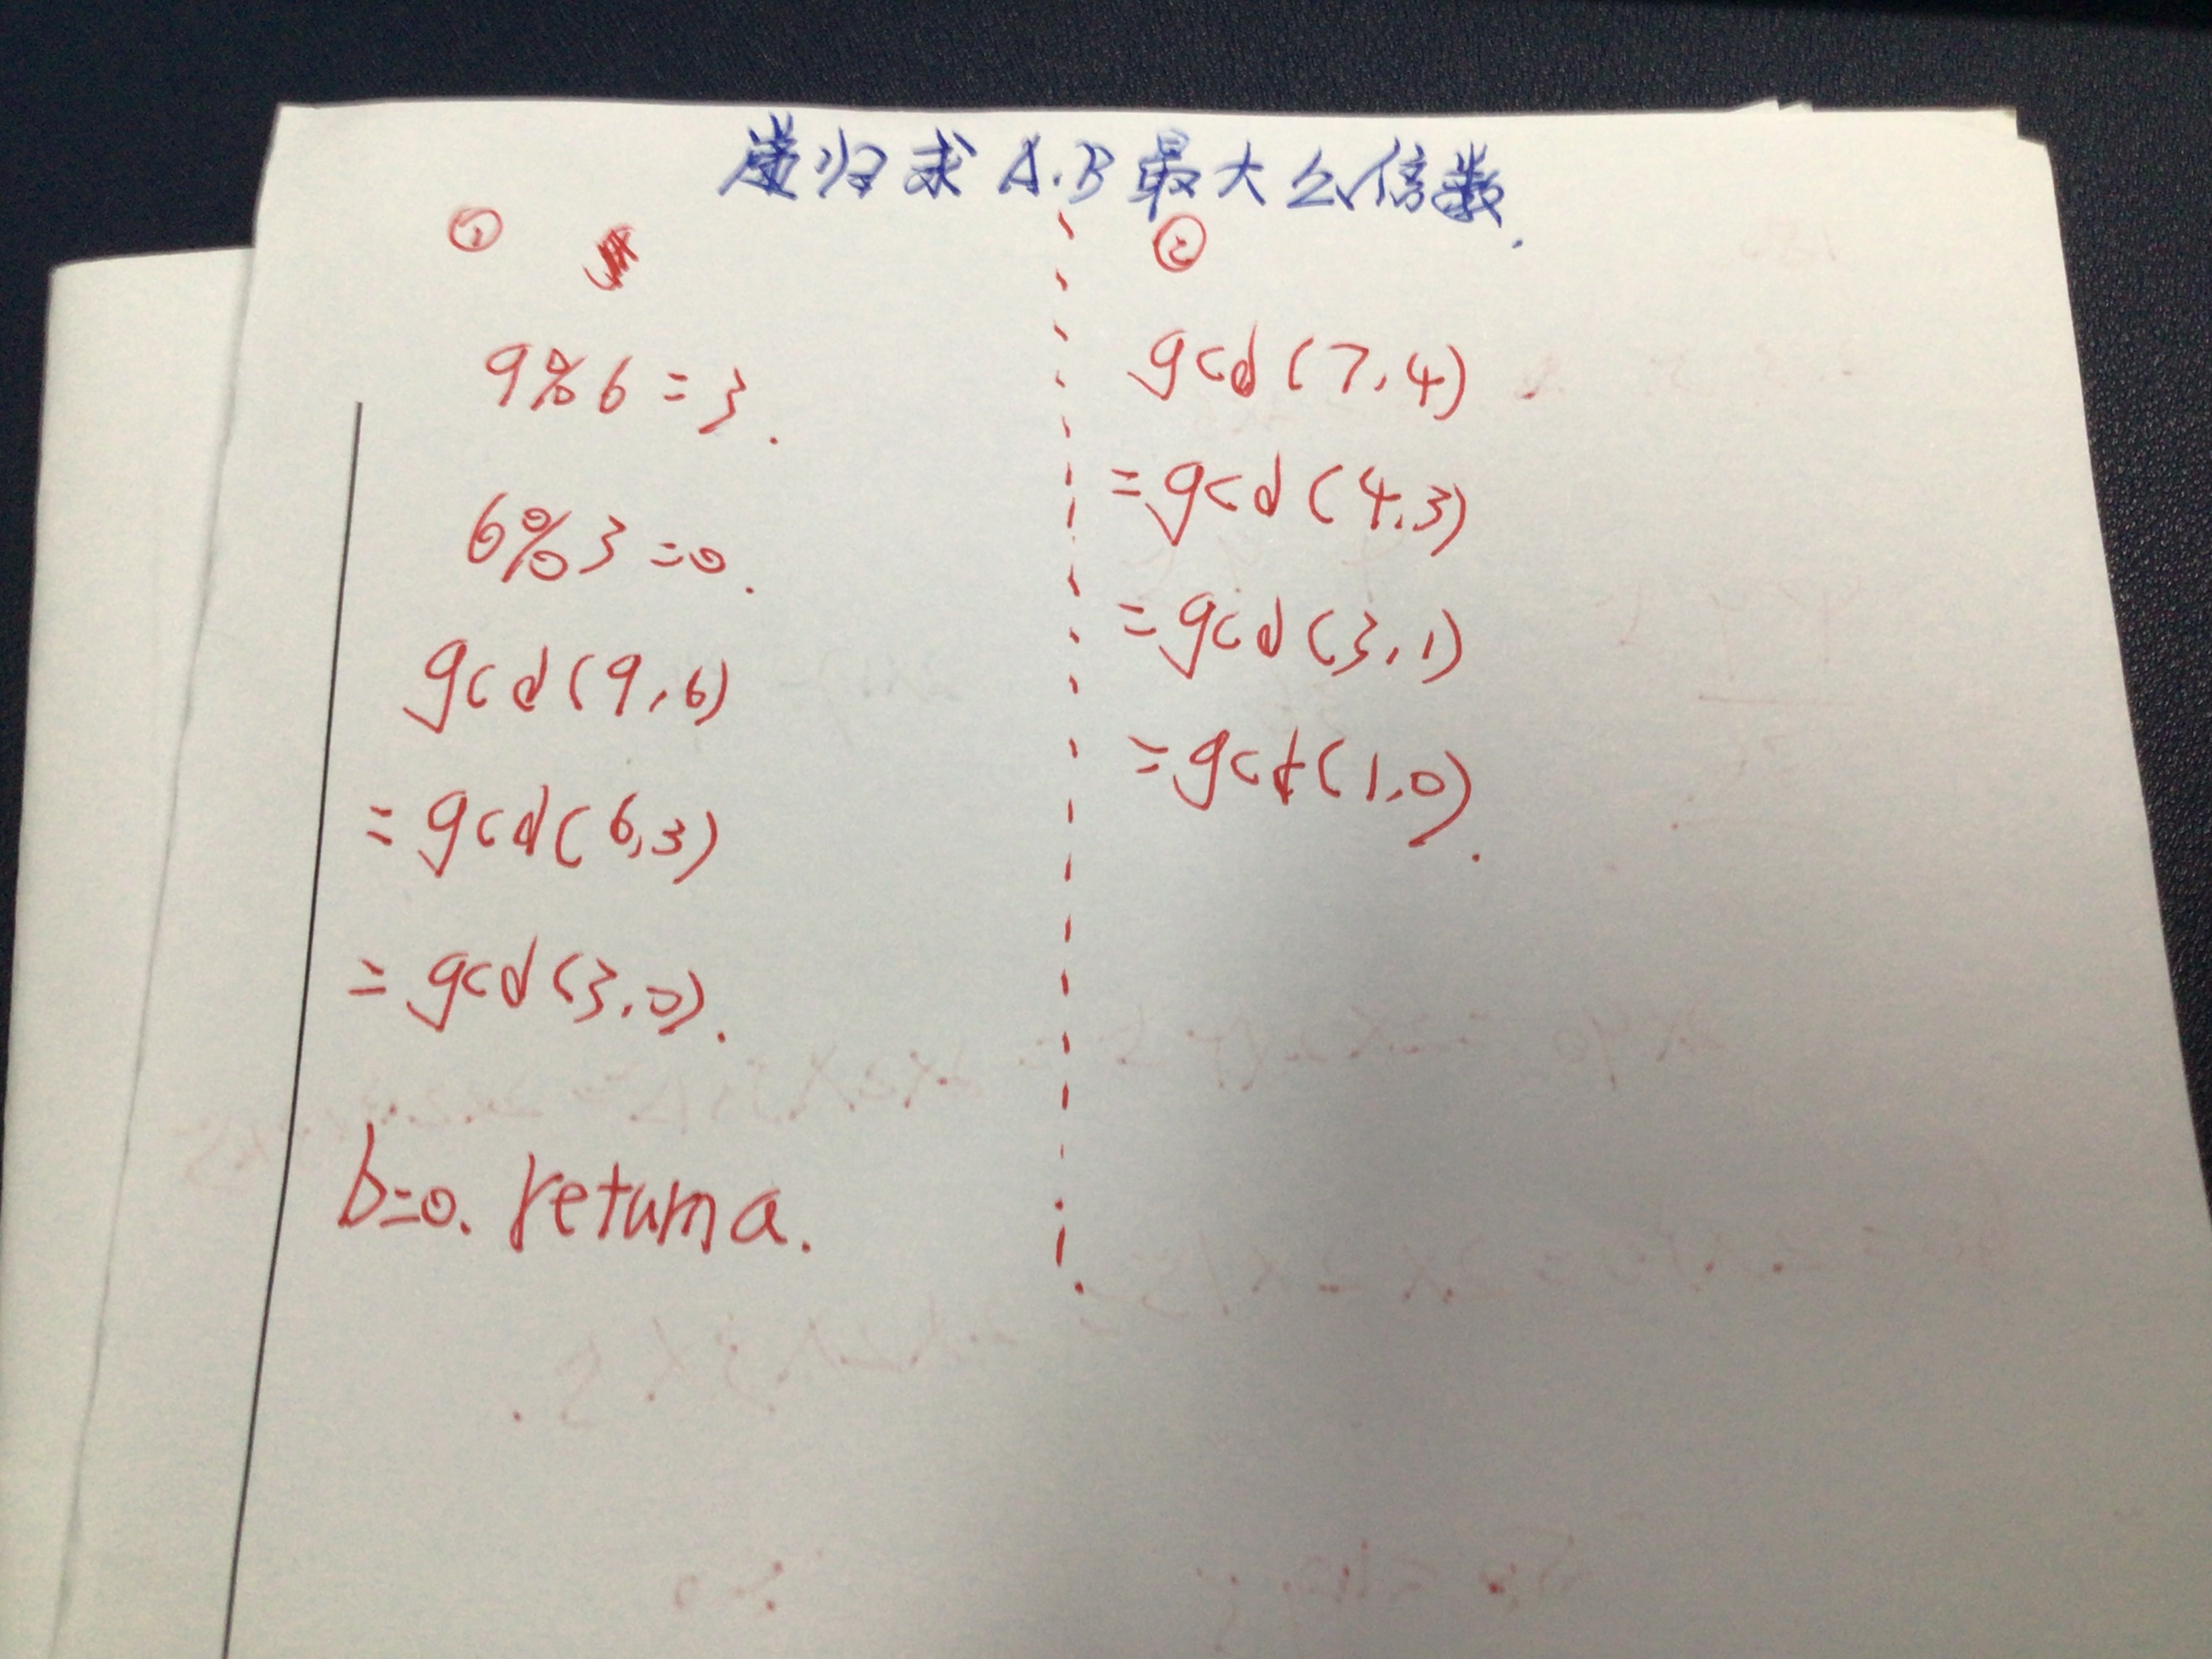 递归求A.B最大公倍数.
①
9%6=3.
6%3=0.
gcd(9,6)
=gcd(6,3)
=gcd(3,0).
b=0. return a.
②
gcd(7,4)
=gcd(4,3)
=gcd(3,1)
=gcd(1,0).